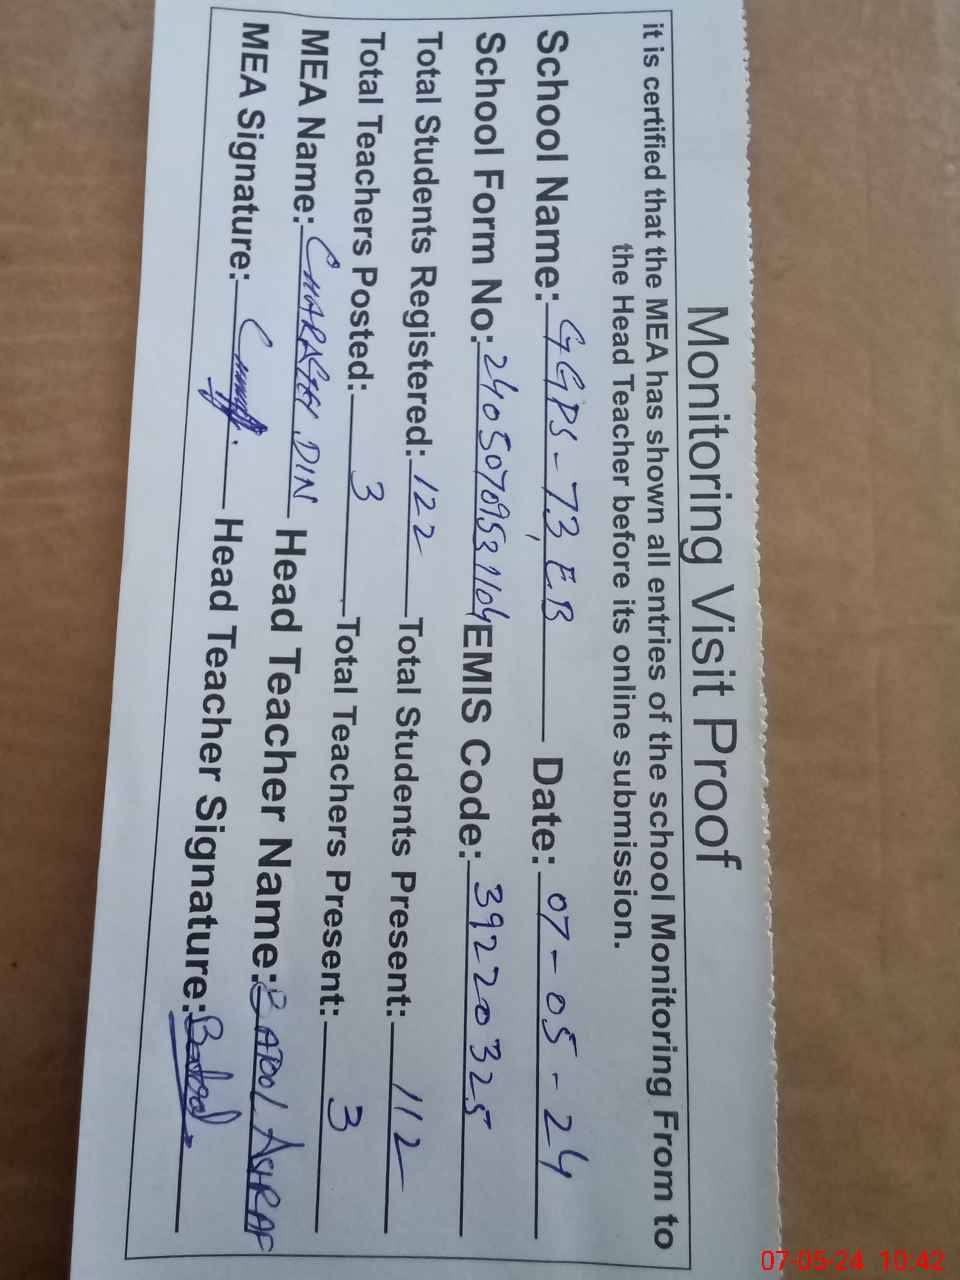 Monitoring Visit Proof
it is certified that the MEA has shown all entries of the school Monitoring From to
the Head Teacher before its online submission.
School Name: GGPS - 73, EB Date: 07-05-24
School Form No: EMIS Code: 39220325
Total Students Registered: 122 Total Students Present: 112
Total Teachers Posted: 3 Total Teachers Present: 3
MEA Name: CHARAGH DIN Head Teacher Name: BATOOL ASHRAF
MEA Signature: Head Teacher Signature: Batool
07-05-24 10:42